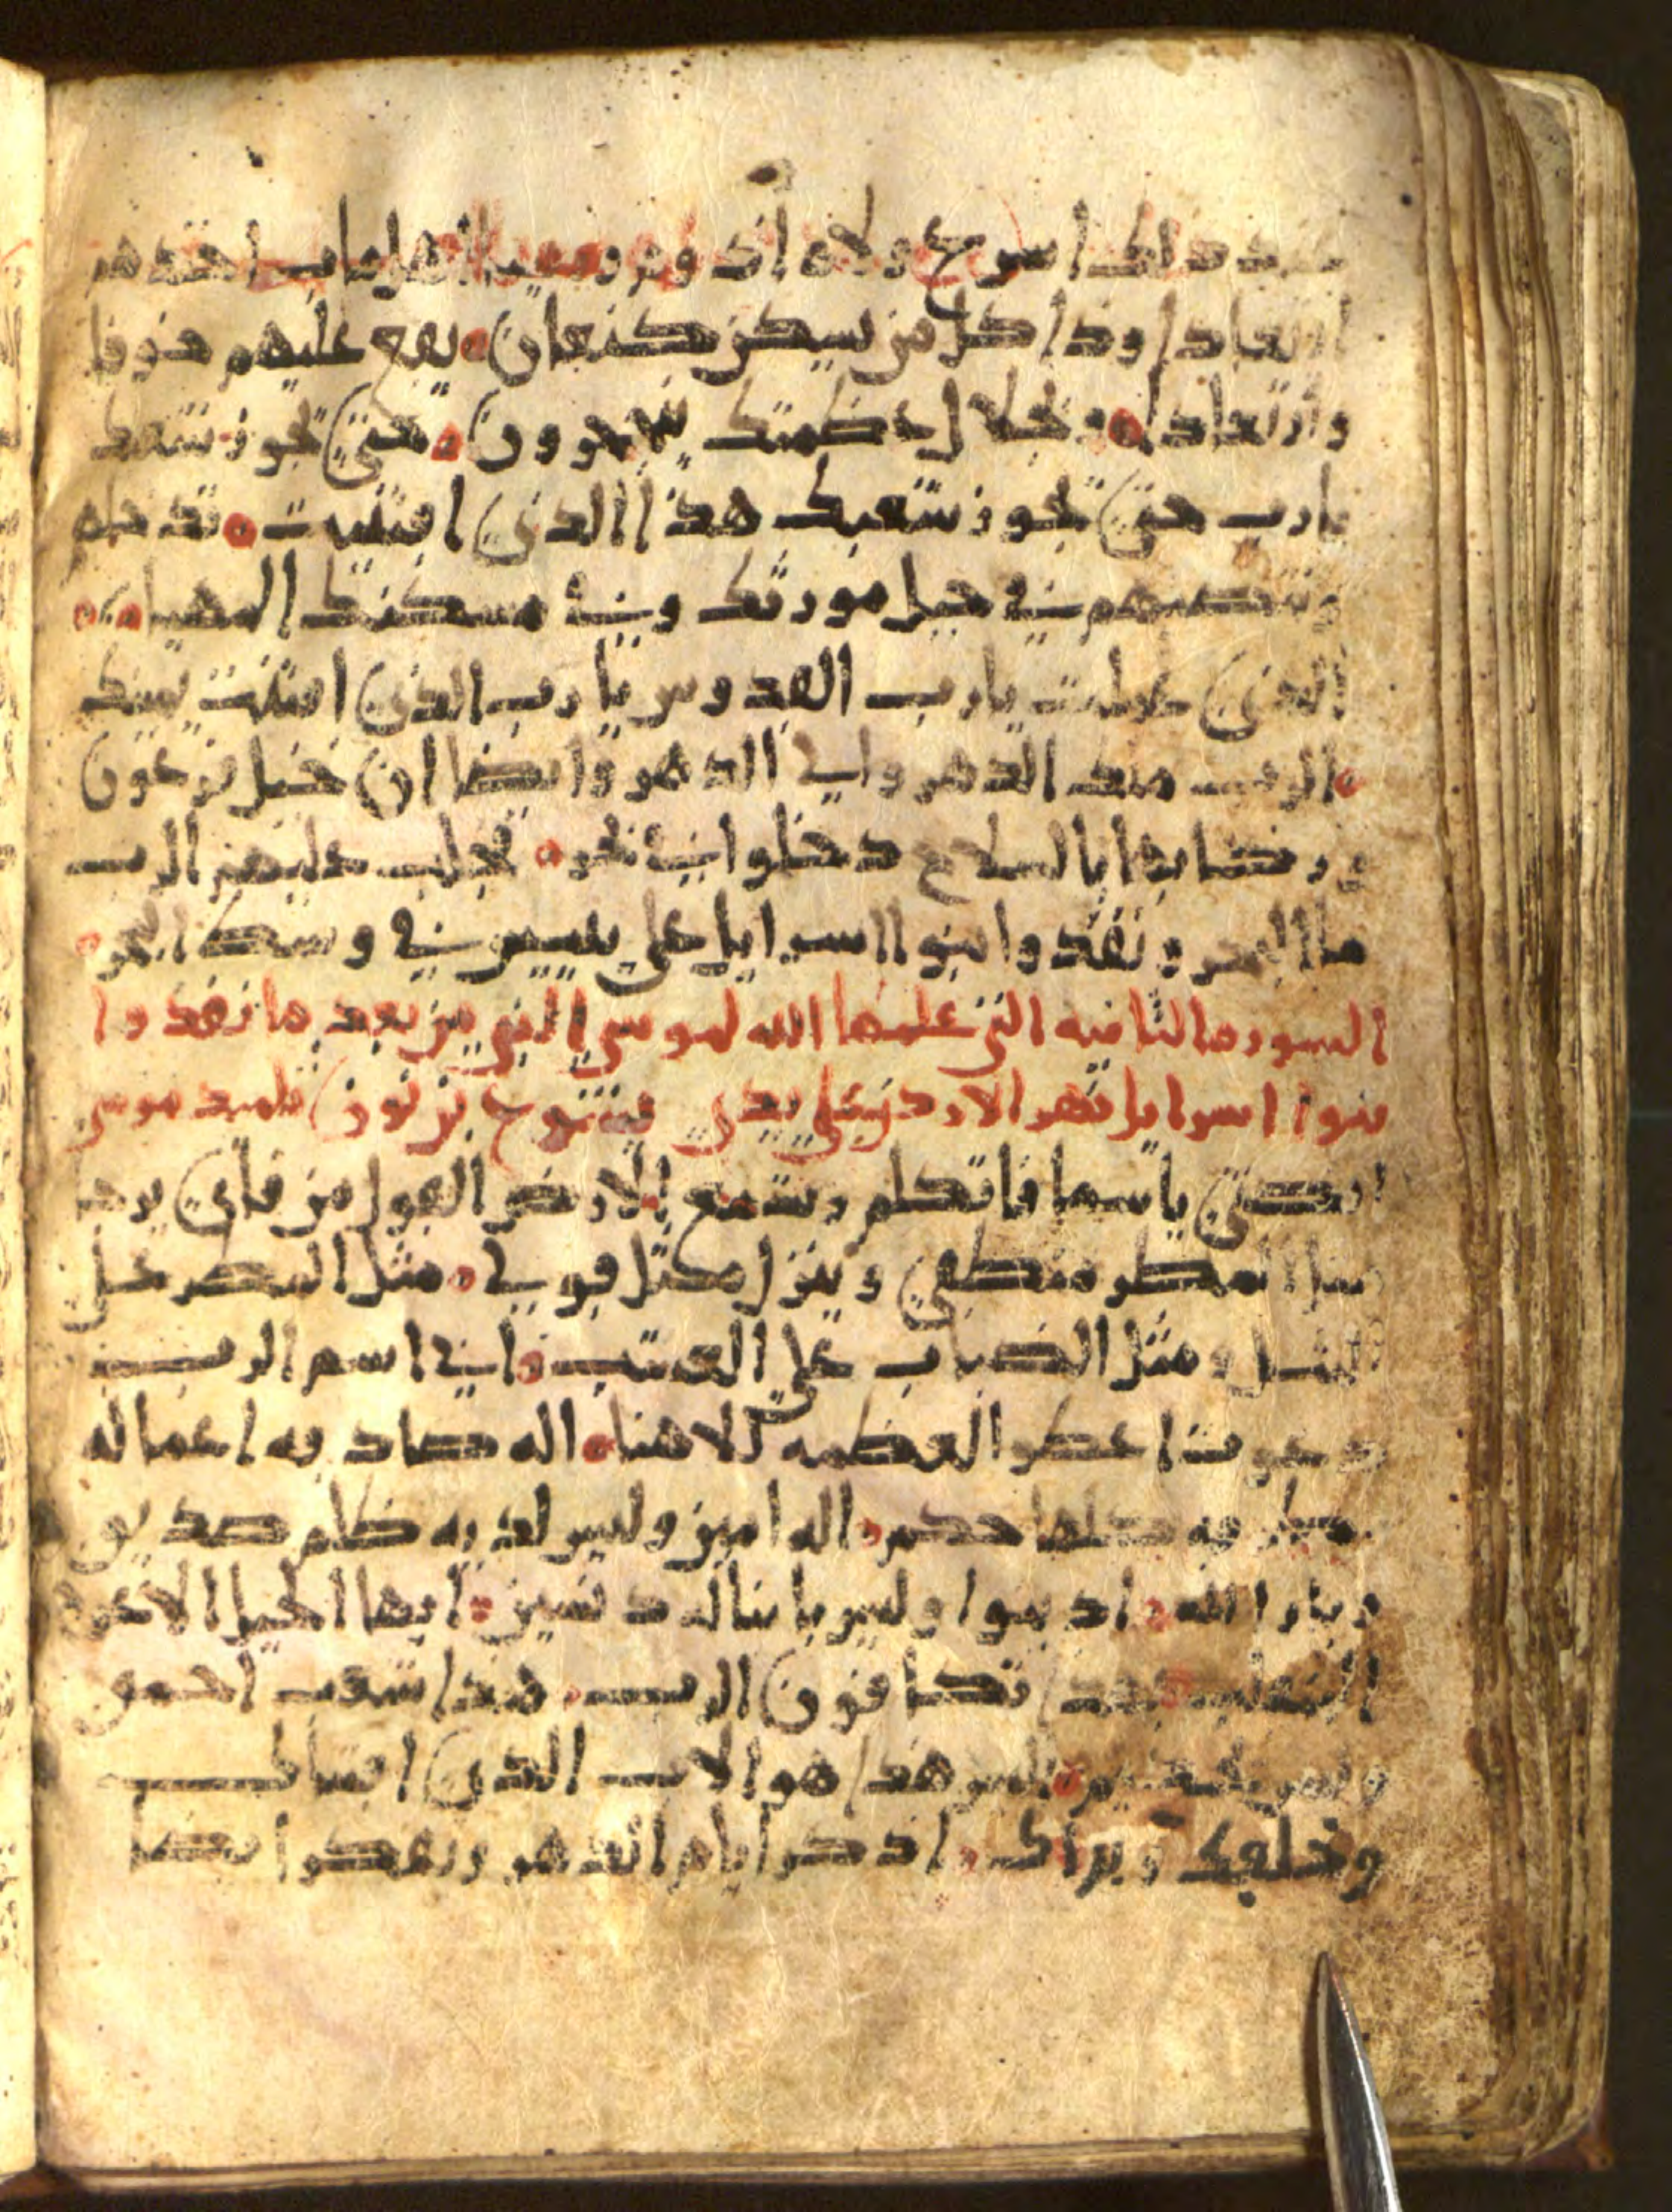 عند ذلك اسرع ولاه اذوم ومعيبا اهل ماب اخذهم
ارتعادا وذا كل من يسكن كنعان يقع عليهم خوفا
وارتعادا وبجلال عظمتك يتحجرون حتى تجوز شعبك
يارب حتى تجوز شعبك هذا الذي اقتنيت تدخلهم
وتنصبهم في جبل مورثك وفي مسكنك المهيا
الذي عملت يارب القدوس يا رب الذي اتقنت يديك
الرب منذ الدهر والى الدهر وايضا ان خيل فرعون
وركابها بالسلاح دخلوا في بحر فجلب عليهم الرب
ما البحر ونفذوا بنوا اسرايل على يبيس في وسط البحر
السوره الثانيه التي علمها الله لموسى النبي من بعد ما نفذوا
بنوا اسرايل نهر الاردن على يدي يشوع بن نون تلميذ موسى
انصتي يا سما فاتكلم وتسمع الارض القول من فاي يرجا
مثل المطر منطقي وينزل مثل قولي مثل المطر على
الثيل ومثل الضباب على العشب اني اسم الرب
دعوت اعطوا العظمه لالاهنا اله صادقه اعماله
طرقه كلها حكم اله امين وليس لديه ظلم صديق
وبار الله اذنبوا وليس يا بنا له دنسين ايها الجيل الاعوج
المتقلب بهذا تكافون الرب هذا شعب احمق
وليس بحكيم اليس هذا هو الاب الذي اقتناك
وخلقك وبراك اذكر ايام الدهر وتفكر ايضا